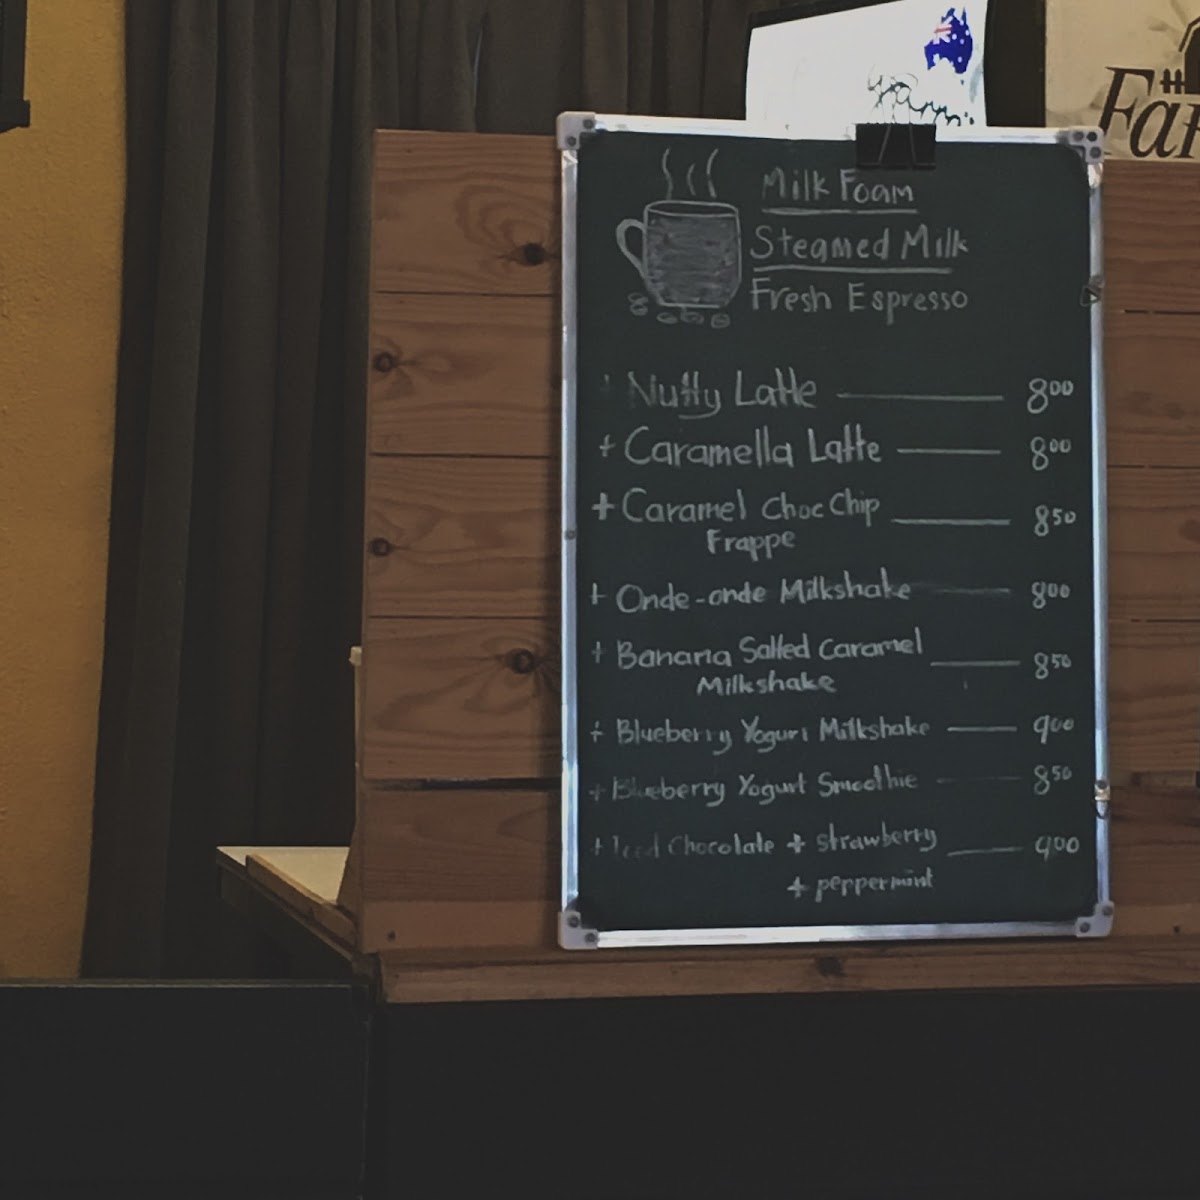 Farm
Far
Milk Foam
Steamed Milk
Fresh Espresso
+ Nutty Latte 8⁰⁰
+ Caramella Latte 8⁰⁰
+ Caramel Choc Chip 8⁵⁰
Frappe
+ Onde-onde Milkshake 8⁰⁰
+ Banana Salted Caramel 8⁵⁰
Milkshake
+ Blueberry Yogurt Milkshake 9⁰⁰
+ Blueberry Yogurt Smoothie 8⁵⁰
+ Iced Chocolate + strawberry 9⁰⁰
+ peppermint